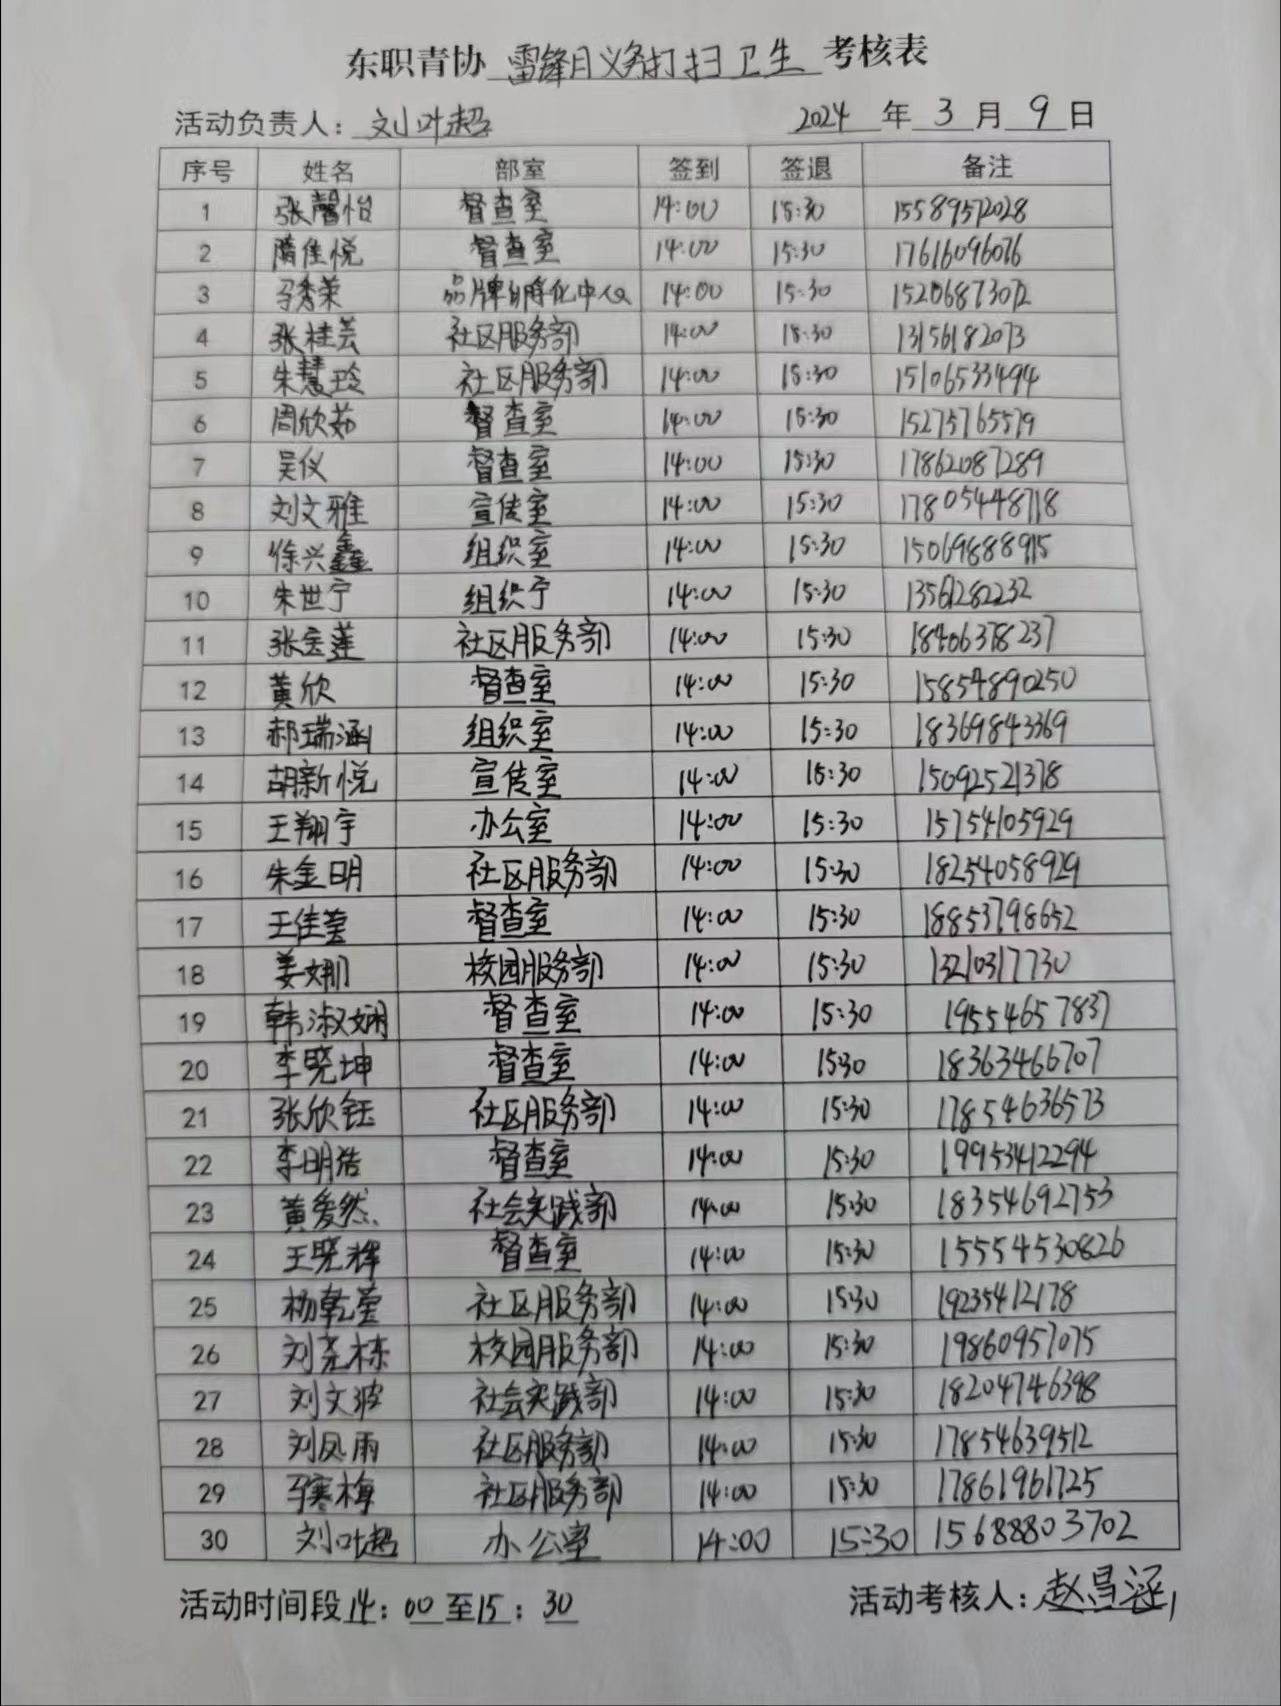 东职青协 雷锋月义务打扫卫生 考核表
活动负责人：刘叶超 2024 年 3 月 9 日
序号 姓名 部室 签到 签退 备注
1 张馨怡 督查室 14:00 15:30 15589512028
2 隋佳悦 督查室 14:00 15:30 17616096076
3 马秀荣 品牌孵化中心 14:00 15:30 15206873072
4 张桂芸 社区服务部 14:00 15:30 13156182073
5 朱慧玲 社区服务部 14:00 15:30 15106533494
6 周欣茹 督查室 14:00 15:30 15275765579
7 吴仪 督查室 14:00 15:30 17862087289
8 刘文雅 宣传室 14:00 15:30 17805448718
9 徐兴鑫 组织室 14:00 15:30 15069888915
10 朱世宁 组织宁 14:00 15:30 13561282232
11 张宝莲 社区服务部 14:00 15:30 18406378237
12 黄欣 督查室 14:00 15:30 15854890250
13 郝瑞涵 组织室 14:00 15:30 18369843369
14 胡新悦 宣传室 14:00 15:30 15092521378
15 王翔宇 办公室 14:00 15:30 15754105929
16 朱金明 社区服务部 14:00 15:30 18254058929
17 王佳莹 督查室 14:00 15:30 18853798652
18 姜娜 校园服务部 14:00 15:30 13210317730
19 韩淑娴 督查室 14:00 15:30 19554657837
20 李晓坤 督查室 14:00 15:30 18363466707
21 张欣钰 社区服务部 14:00 15:30 17854636573
22 李明浩 督查室 14:00 15:30 19953412294
23 黄爱然 社会实践部 14:00 15:30 18354692753
24 王晓辉 督查室 14:00 15:30 15554530826
25 杨乾莹 社区服务部 14:00 15:30 19235412178
26 刘尧栋 校园服务部 14:00 15:30 19860957075
27 刘文波 社会实践部 14:00 15:30 18204746398
28 刘凤雨 社区服务部 14:00 15:30 17854639512
29 马寒梅 社区服务部 14:00 15:30 17861961725
30 刘叶超 办公室 14:00 15:30 15688803702
活动时间段 14：00 至 15：30 活动考核人：赵昌涵